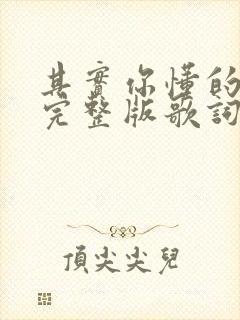 其實你懂的
完整版歌詞
頂尖尖兒